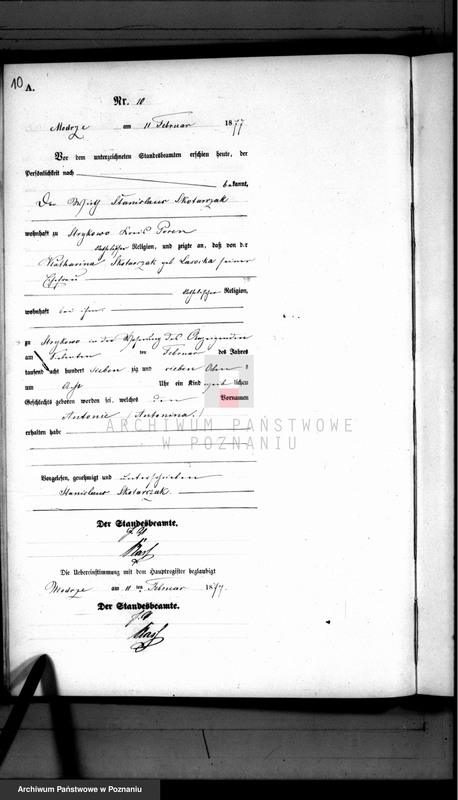 10 A.
Nr. 10
Modrze am 11 Februar 1877
Vor dem unterzeichneten Standesbeamten erschien heute, der
Persönlichkeit nach
bekannt,
Der Wirth Stanislaus Skotarczak
wohnhaft zu Strykowo Kreis Posen
katholischer Religion, und zeigte an, daß von der
Katharina Skotarczak geb seiner
Ehefrau
katholischer Religion,
wohnhaft bei ihm
zu Strykowo in der Wohnung des Anzeigenden
am ten Februar des Jahres
tausend acht hundert sieben zig und sieben
um Acht Uhr ein Kind weiblichen
Geschlechts geboren worden sei, welches den Vornamen
Antonie /Antonina/
erhalten habe
ARCHIWUM PAŃSTWOWE
W POZNANIU
Vorgelesen, genehmigt und unterschrieben
Stanislaus Skotarczak
Der Standesbeamte.
Die Uebereinstimmung mit dem Hauptregister beglaubigt
Modrze am 11 ten Februar 1877.
Der Standesbeamte.
Archiwum Państwowe w Poznaniu